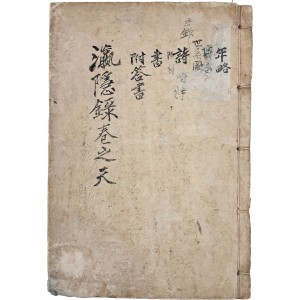 年略
世系圖
詩
書
附答書
瀛隱錄卷之天